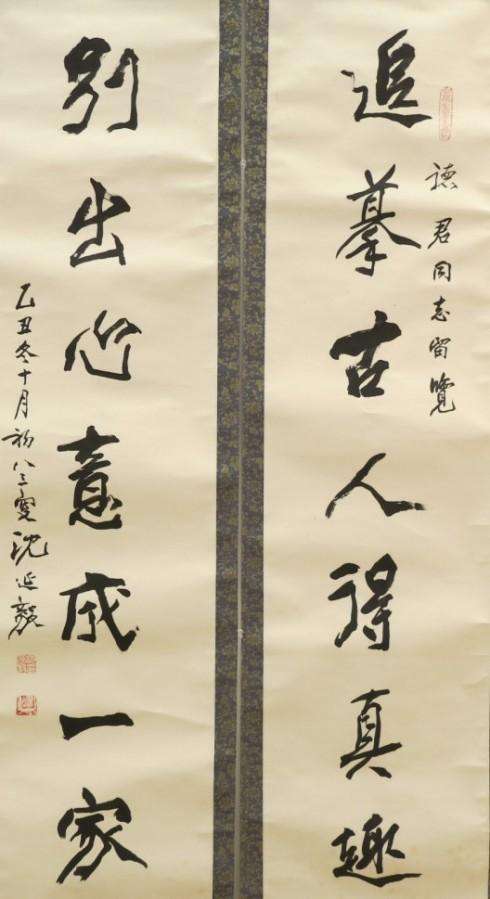 追摹古人得真趣
德君同志留覽
別出心意成一家
乙丑冬十月初八三叟沈延毅